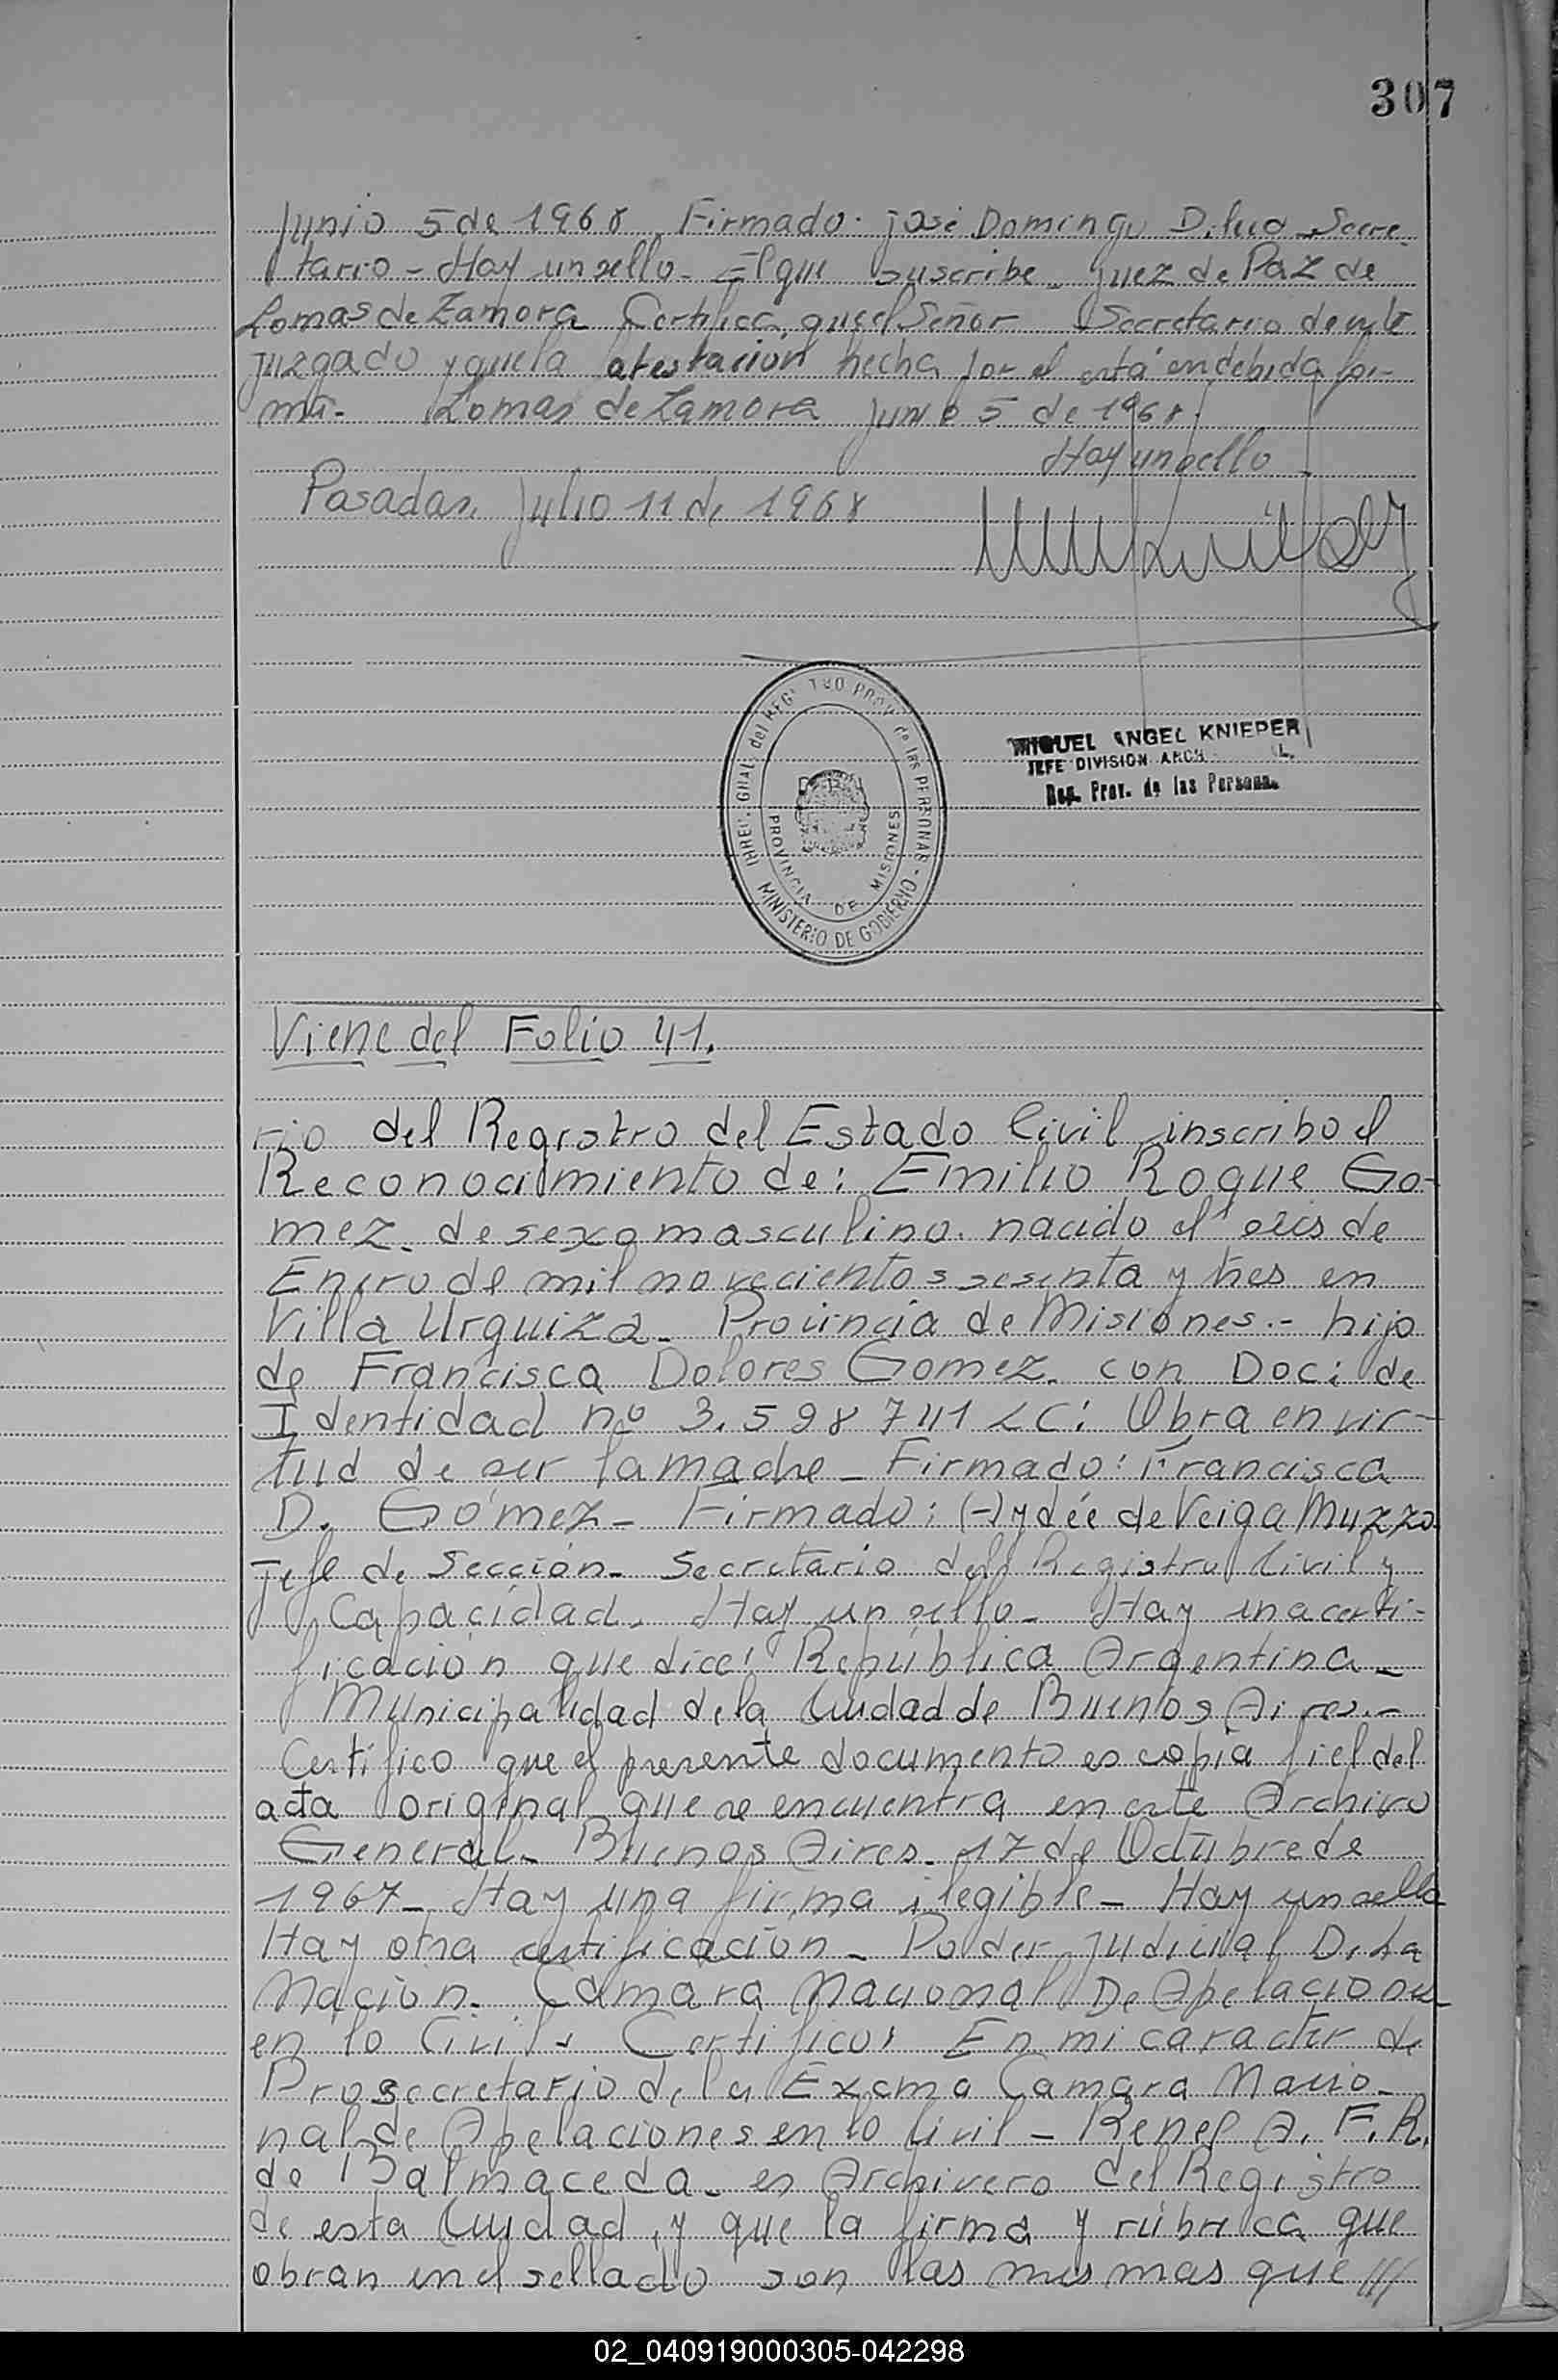 307
Junio 5 de 1968 Firmado: José Domingo Secre-
tario - Hay un sello - El que suscribe - Juez de Paz de
Lomas de Zamora Certifica, que el Señor Secretario de este
juzgado y que la atestación hecha por el está en debida for-
ma - Lomas de Zamora Junio 5 de 1968.
Hay un sello
Posadas, Julio 11 de 1968
MIGUEL ANGEL KNIEPER
JEFE DIVISION ARCH L.
Reg. Prov. de las Personas
DIREC. GRAL. del REGISTRO PROV. de las PERSONAS - MINISTERIO DE GOBIERNO
PROVINCIA DE MISIONES
Viene del Folio 41.
rio del Registro del Estado Civil, inscribo el
Reconocimiento de: Emilio Roque Go-
mez. de sexo masculino. nacido el seis de
Enero de mil novecientos sesenta y tres en
Villa Urquiza - Provincia de Misiones.- hijo
de Francisca Dolores Gomez. con Doc: de
Identidad nº 3.598741 LC: Obra en vir-
tud de ser la madre - Firmado: Francisca
D. Gómez - Firmado: Hydée de Veiga Muzzo
Jefe de Sección - Secretario del Registro Civil y
Capacidad. Hay un sello - Hay una certi-
ficación que dice: República Argentina -
Municipalidad de la Ciudad de Buenos Aires.-
Certifico que el presente documento es copia fiel del
acta original que se encuentra en este Archivo
General - Buenos Aires - 17 de Octubre de
1967 - Hay una firma ilegible - Hay un sello
Hay otra certificación - Poder Judicial De La
Nación. Camara Nacional De Apelaciones
en lo Civil. Certifico: En mi caracter de
Prosecretario de la Excma Camara Nacio-
nal de Apelaciones en lo Civil - Renee A. F. R.
de Balmaceda - es Archivero del Registro
de esta Ciudad, y que la firma y rúbrica que
obran en el sellado son las mismas que ///
02_040919000305-042298